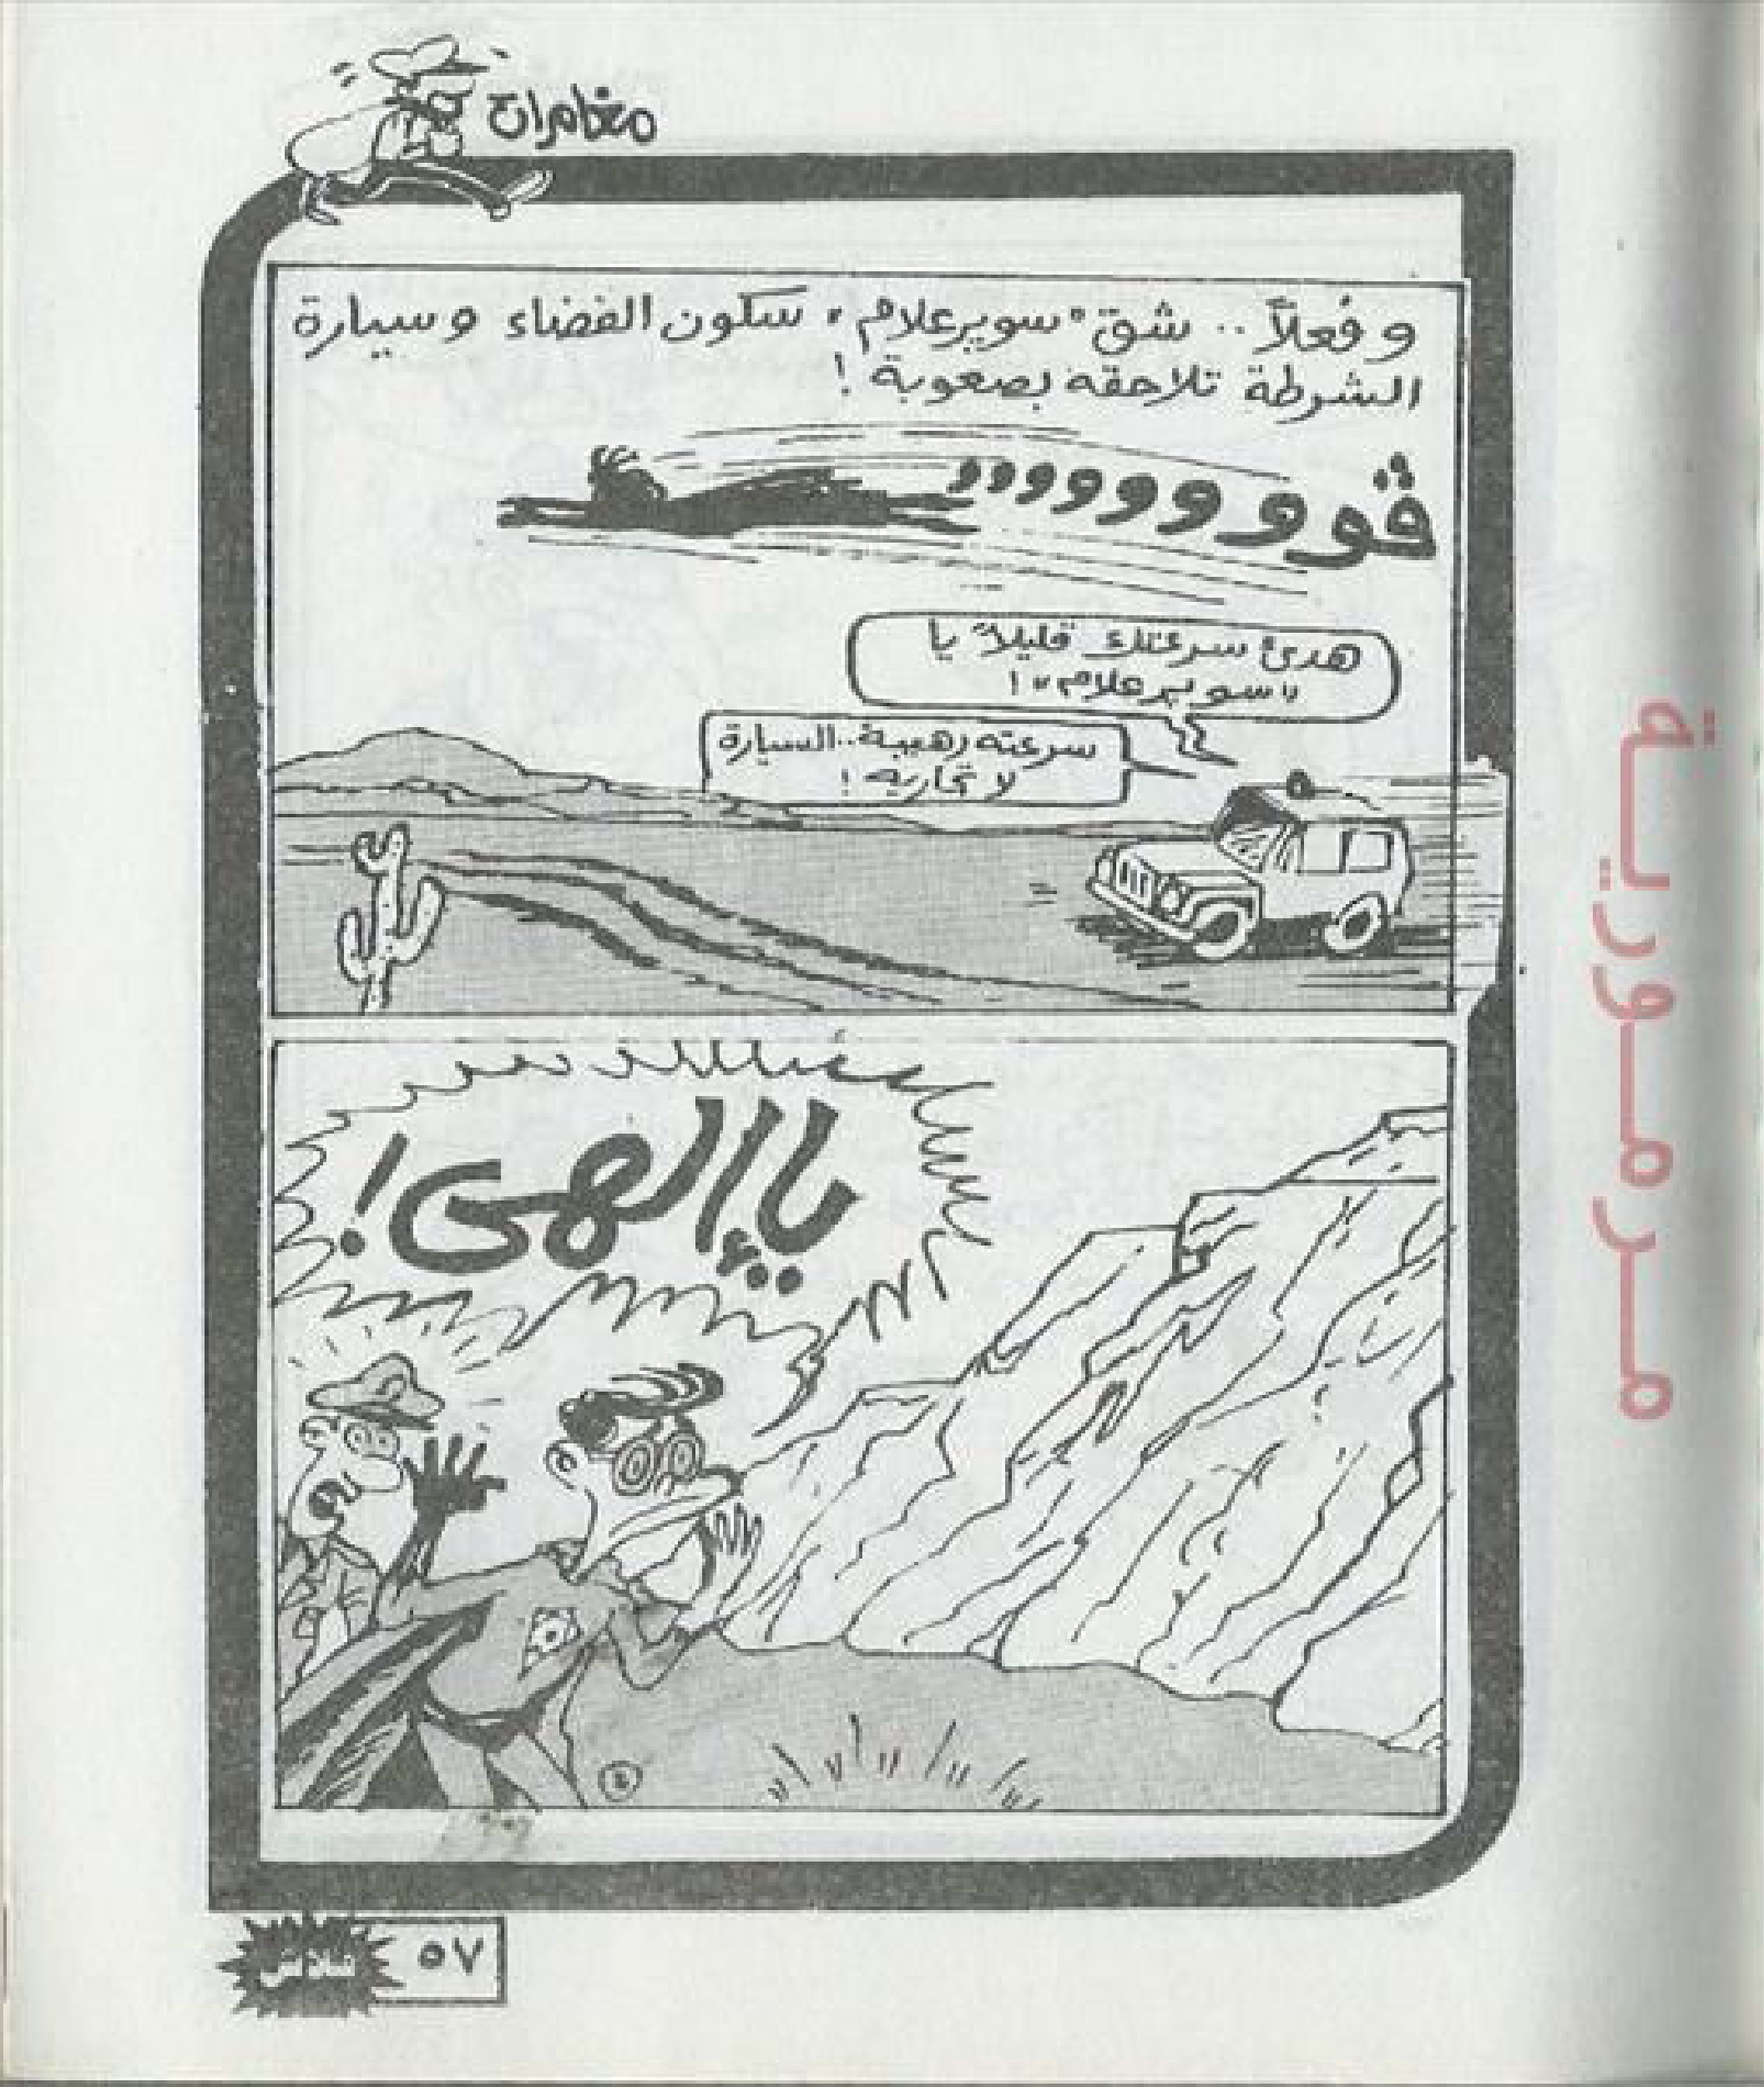 مغامرات
و فعلاً.. شق "سوبر علام" سكون الفضاء و سيارة
الشرطة تلاحقه بصعوبة !
ڤوووووووووو
هدئ سرعتك قليلاً يا
"سوبر علام" !
سرعته رهيبة.. السيارة
لا تجاريه !
يا إلهى !
فلاش
٥٧
مرمورية